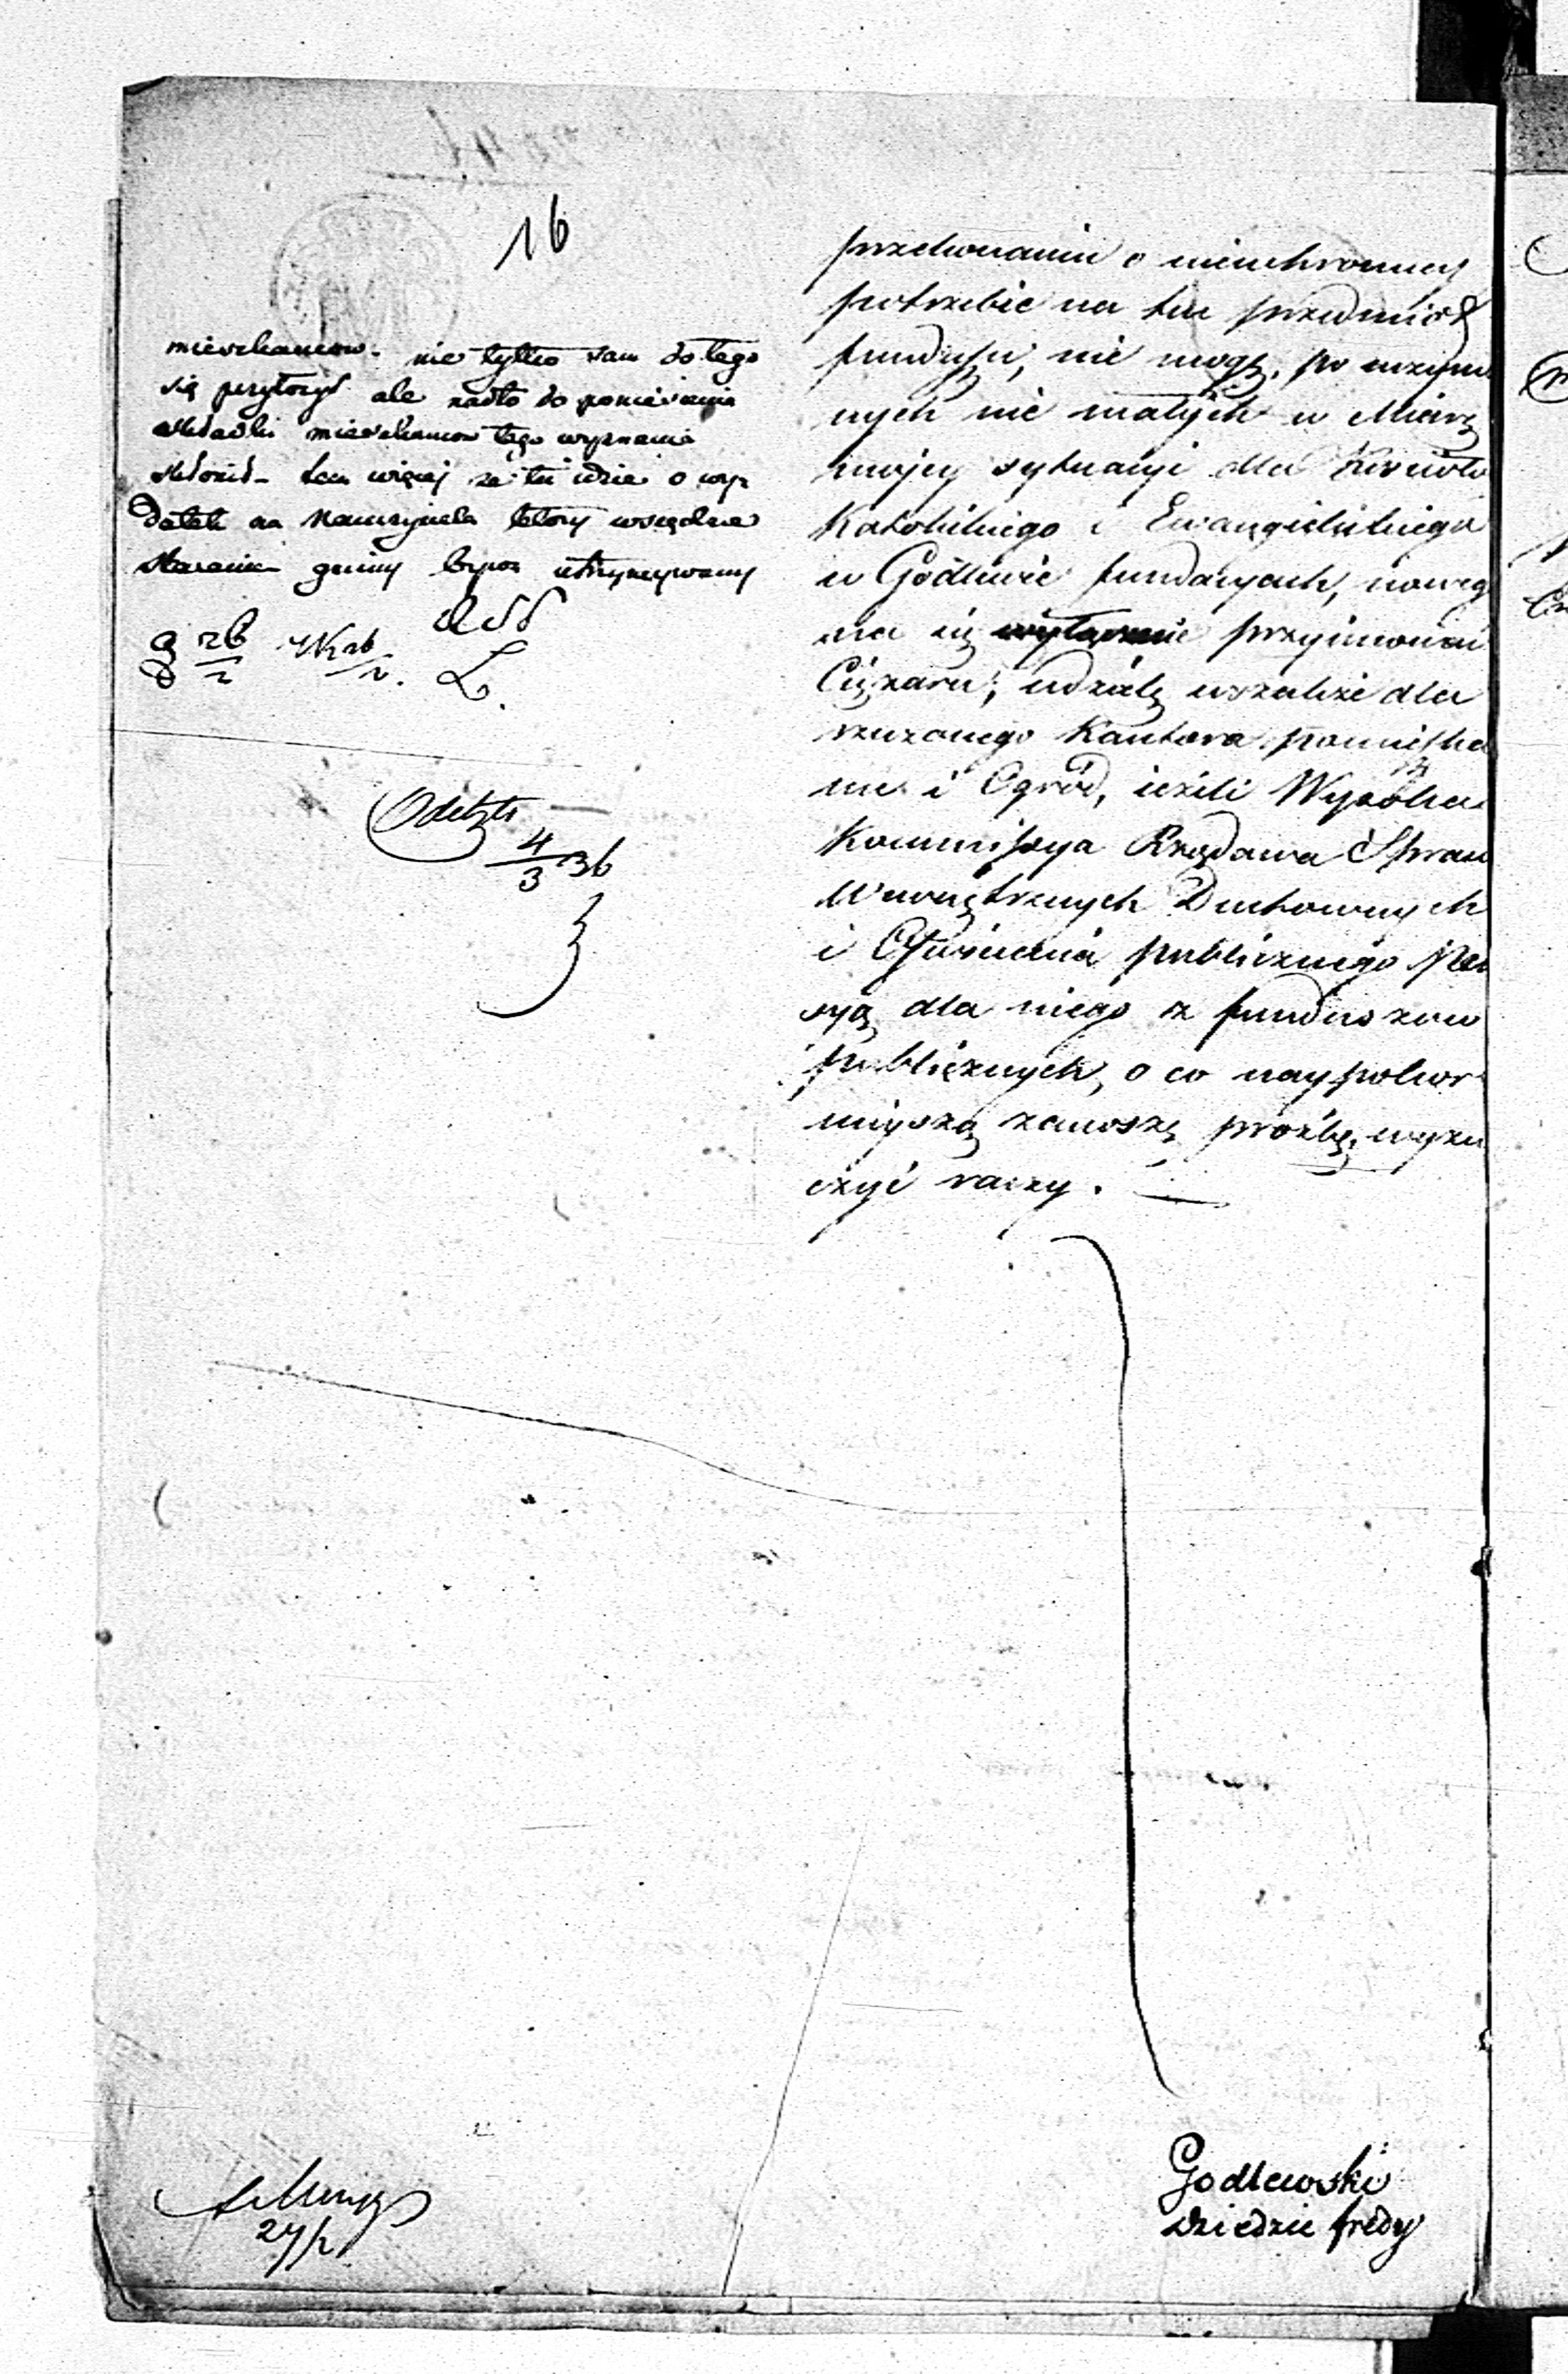 16
mieszkancow. nie tylko sam do tego
się perytozył ale nadto do poniesienia
składki mieszkancow tego wyznania
skłonił. tem więcej że tu idzie o wy-
datek na Nauczyciela ktory wszędzie
Staraniem gminy bywa utrzymywany
Odeszło
4/3 36
24/2
przekonaniu o nieuchronney
potrzebie na ten przedmiot
funduszu, nie mogę, po uczynio
nych nie małych w Miarę
mojey sytuacyi dla Kościoła
Katolickiego i Ewangielickiego
w Godlewie fundacyach, nowego
na się przyimować
Ciężaru; udzielę wszakże dla
rzeczonego Kantora pomieszka
nie i Ogród, ieżeli Wysoka
Kommissya Rządowa Spraw
Wewnętrznych Duchownych
i Oświecenia publicznego Pen
syą dla niego z funduszow
publicznych, o co naypokor
nieyszą zanoszę proźbę, wyzna
czyć raczy.
Godlewski
Dziedzic Fredy